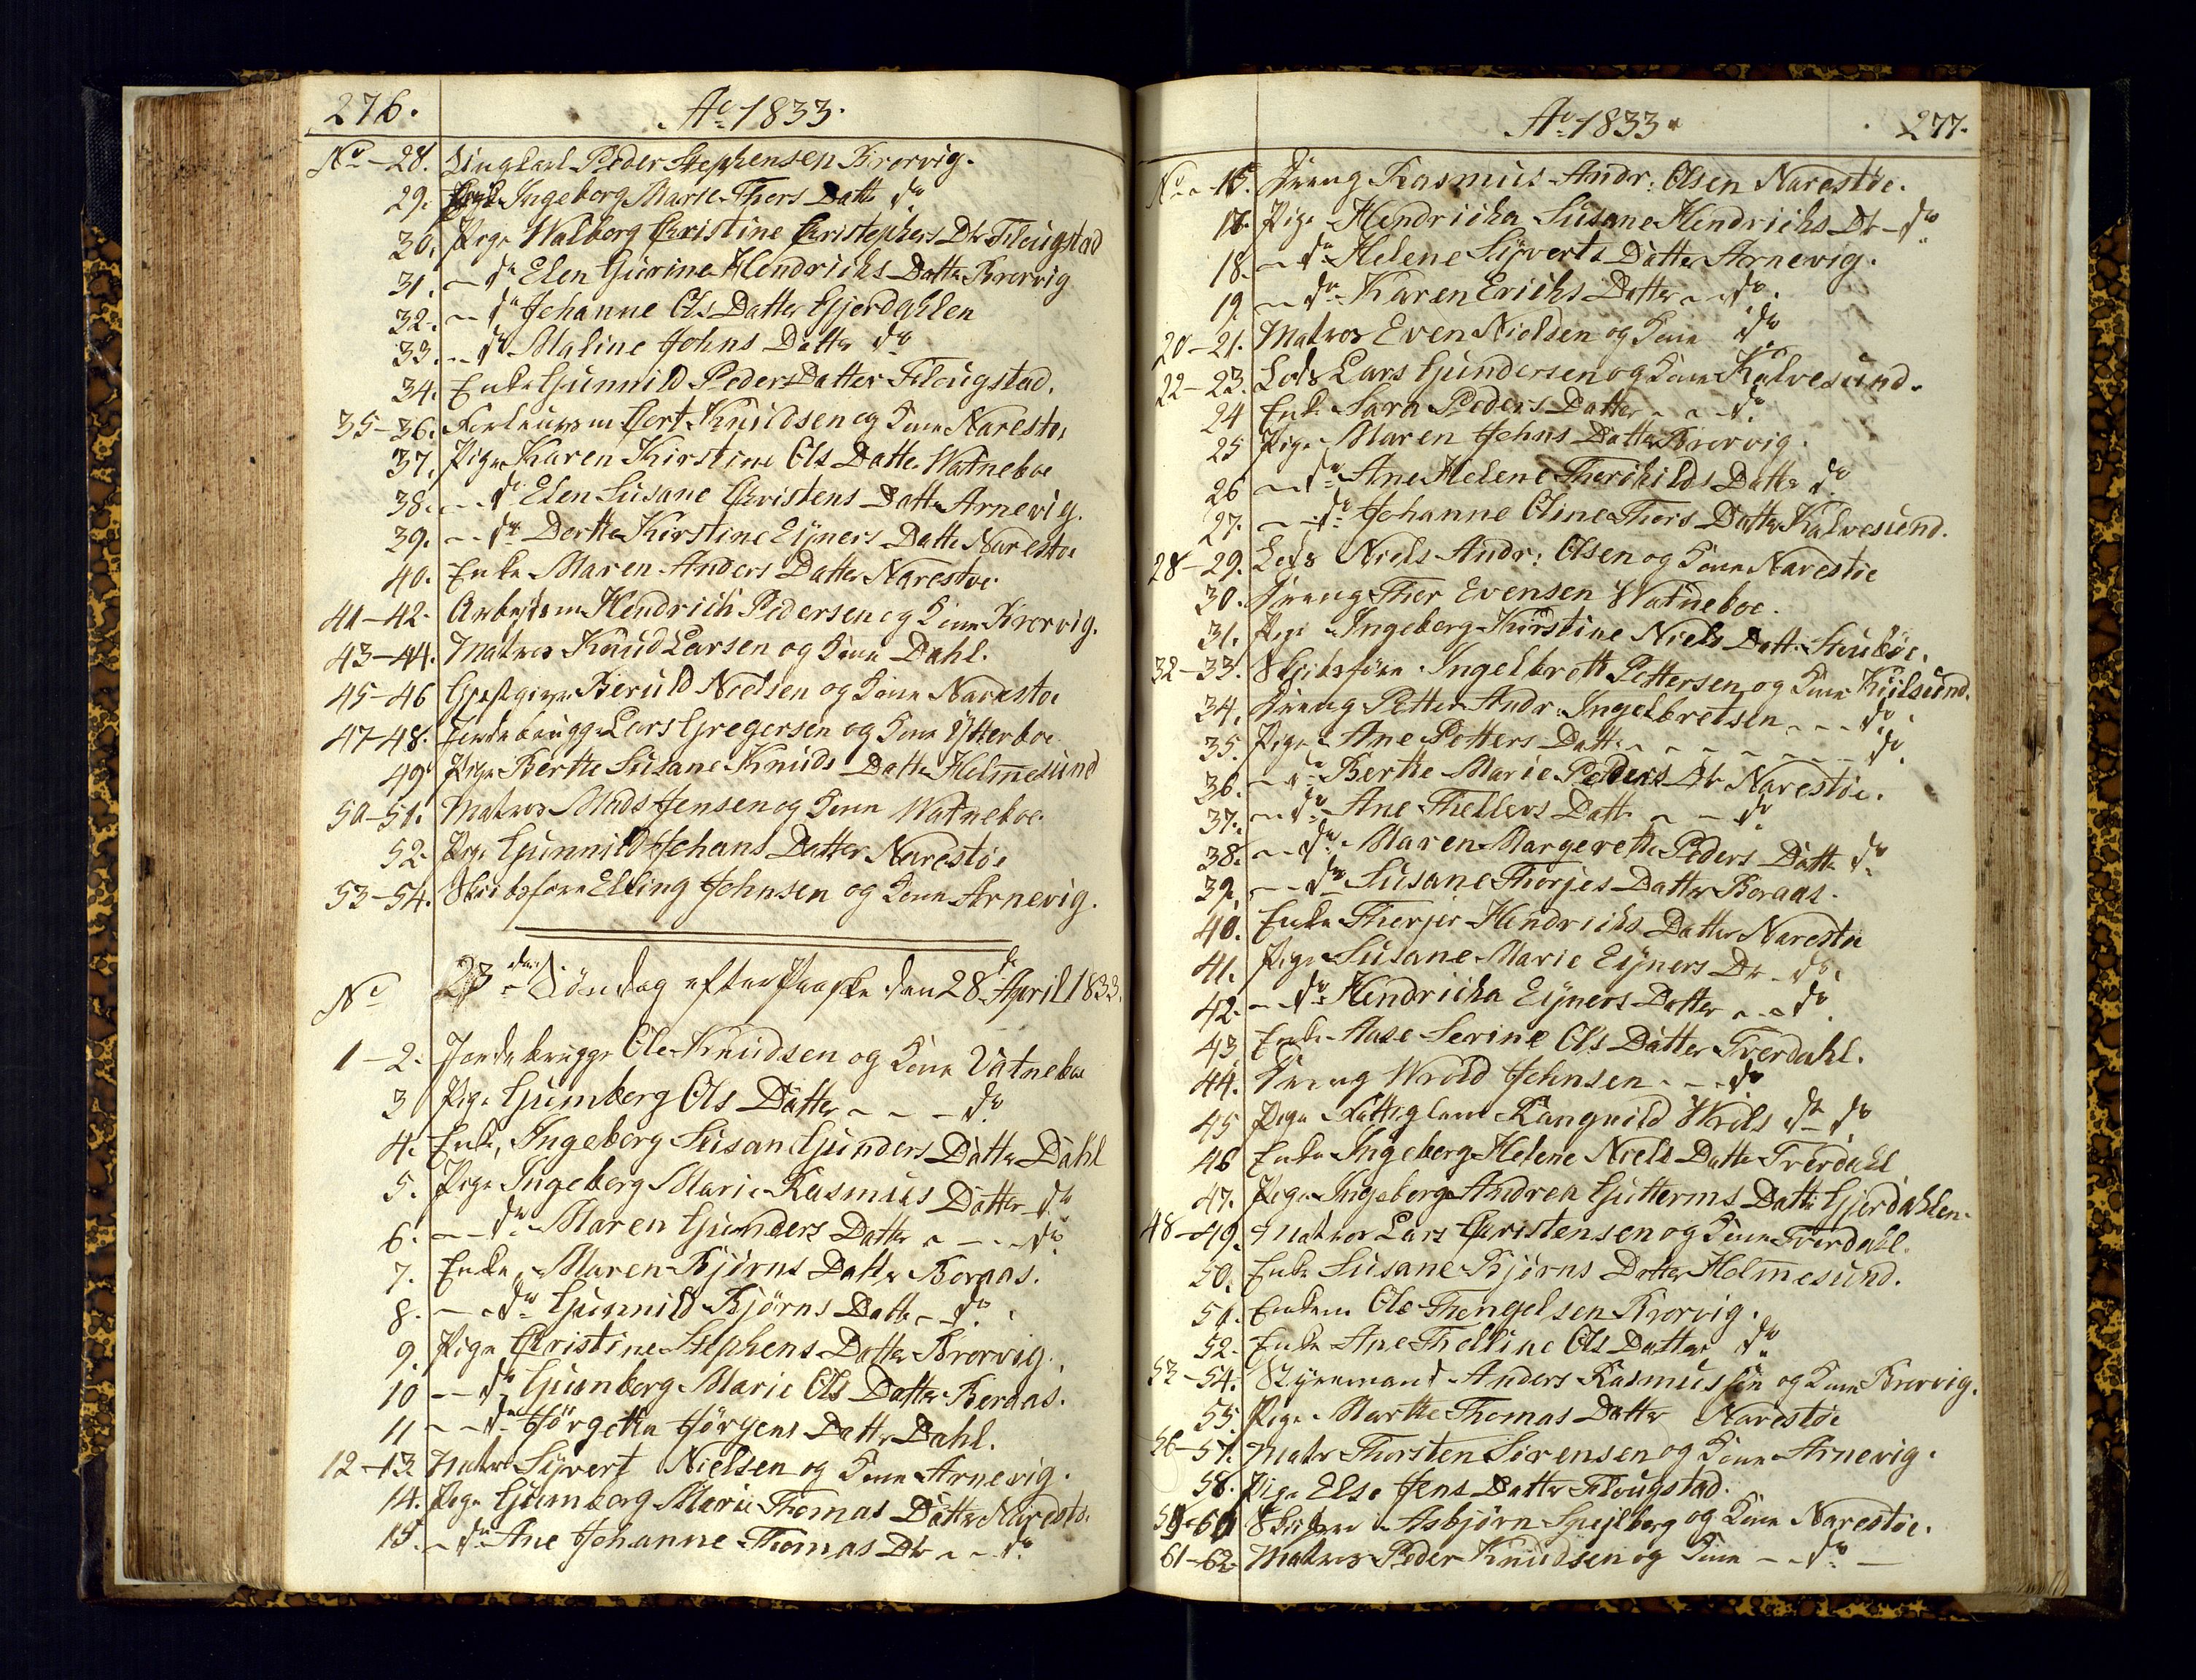 276.
Ao 1833.
No - 28. Ungkarl Peder Stephensen Krorvig.
29. Ingeborg Marie Thors Datte do
30. Pige Walborg Christine Christophers Dtr Flougstad
31. -- do Elen Gurine Hendrichs Datte Krorvig
32. -- do Johanne Ols Datter Gjerdahlen
33. -- do Maline Johns Datter do
34. Enke Gunnild Peders Datter Flougstad.
35-36. Cort Knudsen og Kone Narestøe
37. Pige Karen Kirstine Ols Datte Watneboe
38. -- do Elen Susane Christens Datte Arnevig.
39. -- do Dorthe Kirstine Eyners Datte Narestøe
40. Enke Maren Anders Datter Narestøe.
41-42. Arbejdsm Hendrich Pedersen og Kone Krorvig.
43-44. Matros Knud Larsen og Kone Dahl.
45-46 Gjestgiver Beruld Nielsen og Kone Narestøe
47-48. Jordebrugge Lars Gregersen og Kone Ytterboe
49 Pige Berthe Susane Knuds Datte Holmesund
50-51. Matros Mads Jensen og Kone Watneboe.
52. Pige Gunnild Johans Datter Narestøe
53-54. Skibsføre Elling Johnsen og Kone Arnevig.
No Søndag efter Paaske den 28de April 1833.
1-2. Jordebrugge Ole Knudsen og Kone Vatneboe
3 Pige Gumborg Ols Datter - - - do
4. Enke, Ingeborg Susan Gunders Datter Dahl
5. Pige Ingeborg Marie Rasmus Datter do
6. -- do Maren Gunders Datter - - - do
7. Enke Maren Bjørns Datter Boraas.
8. -- do Gunnild Bjørns Datte - do
9. Pige Christine Stephens Datter Krorvig.
10 -- do Gunborg Marie Ols Datter Boraas.
11 -- do Jørgethe Jørgens Datter Dahl.
12-13. Matros Syvert Nielsen og Kone Arnevig.
14. Pige Gumborg Marie Thomas Datter Narestø.
15. - do Ane Johanne Thomas Dtr - - do
Ao 1833
277.
No - 16. Dreng Rasmus Andr: Olsen Narestøe.
17. Pige Hendricha Susane Hendrichs Dtr - do
18. -- do Helene Syverts Datter Arnevig.
19. -- do Karen Erichs Datter - - do.
20-21. Matros Even Nielsen og Kone do
22-23. Lods Lars Gundersen og Kone Kalvesund.
24 Enke Sara Peders Datter - - - do
25 Pige Maren Johns Datter Krorvig.
26 -- do Ane Helene Therchilds Datter do
27. -- do Johanne Oline Thors Datter Kalvesund.
28-29. Lods Niels Andr: Olsen og Kone Narestøe
30. Dreng Thor Evensen Watneboe.
31. Pige Ingeborg Kirstine Niels Datt. Stuebøe.
32-33. Skibsføre Ingelbrett Pettersen og Kone Kiilsund.
34. Dreng Petter Andr: Ingelbretsen - - - do.
35. Pige Ane Petters Datt. - - - - - - do
36. -- do Berthe Marie Peders Dtr Narestøe.
37. -- do Ane Thellevs Datt. - - do
38. -- do Maren Margerethe Peders Datte do
39. -- do Susane Thorjes Datter Boraas.
40. Enke Thorjer Hendrichs Datter Narestøe
41. Pige Susane Marie Eyners Dtr - do.
42. -- do Hendricha Eyners Datter - - do
43. Enke Aase Serine Ols Datter Tverdahl.
44. Dreng Wrold Johnsen - - - do
45 Pige Fattiglem Rangnild Wrols do do
46 Enke Ingeborg Helene Niels Datte Tverdahl
47. Pige Ingeborg Andrea Gutterms Datte Gjerdahlen.
48-49. Matros Lars Christensen og Kone Tverdahl.
50. Enke Susane Bjørns Datter Holmesund.
51. Enkem Ole Thengelsen Krorvig.
52. Enke Ane Thelline Ols Datter do
53-54. Styremand Anders Rasmussen og Kone Krorvig.
55. Pige Marthe Thomas Datter Narestøe
56-57. Matr Thorsten Sørensen og Kone Arnevig.
58. Pige Else Jens Datter Flougstad.
59-60 Asbjørn Spejlberg og Kone Narestøe.
61-62. Matros Peder Knudsen og Kone - - do -